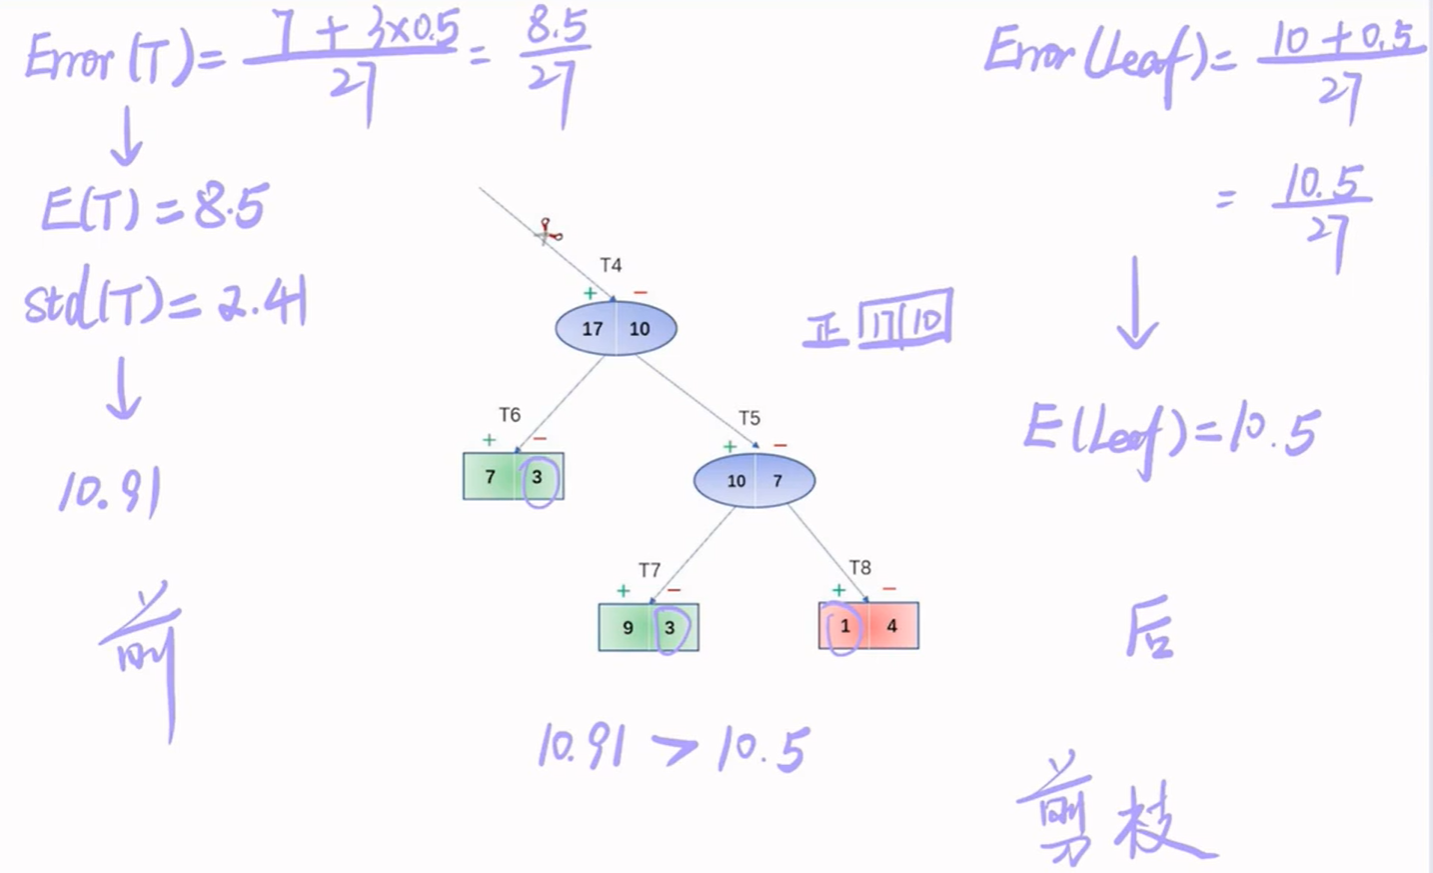 Error(T)= 7+3×0.5/27 = 8.5/27
↓
E(T)=8.5
std(T)=2.41
↓
10.91
前
T4
+ −
17 10
正 17 10
T6
+ −
7 3
T5
+ −
10 7
T7
+ −
9 3
T8
+ −
1 4
10.91 > 10.5
Error(Leaf)= 10+0.5/27
= 10.5/27
↓
E(Leaf)=10.5
后
剪枝